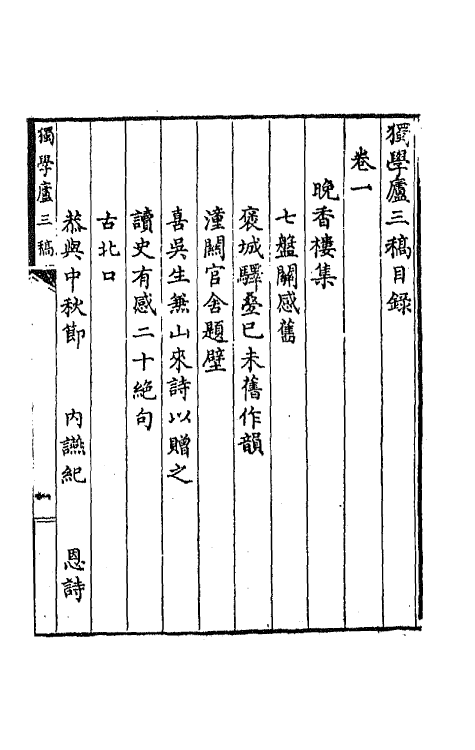 獨學廬三稿目錄
卷一
晚香樓集
七盤關感舊
褒城驛疊已未舊作韻
潼關官舍題壁
喜吳生無山來詩以贈之
讀史有感二十絕句
古北口
恭與中秋節 內讌紀 恩詩
獨學廬三稿